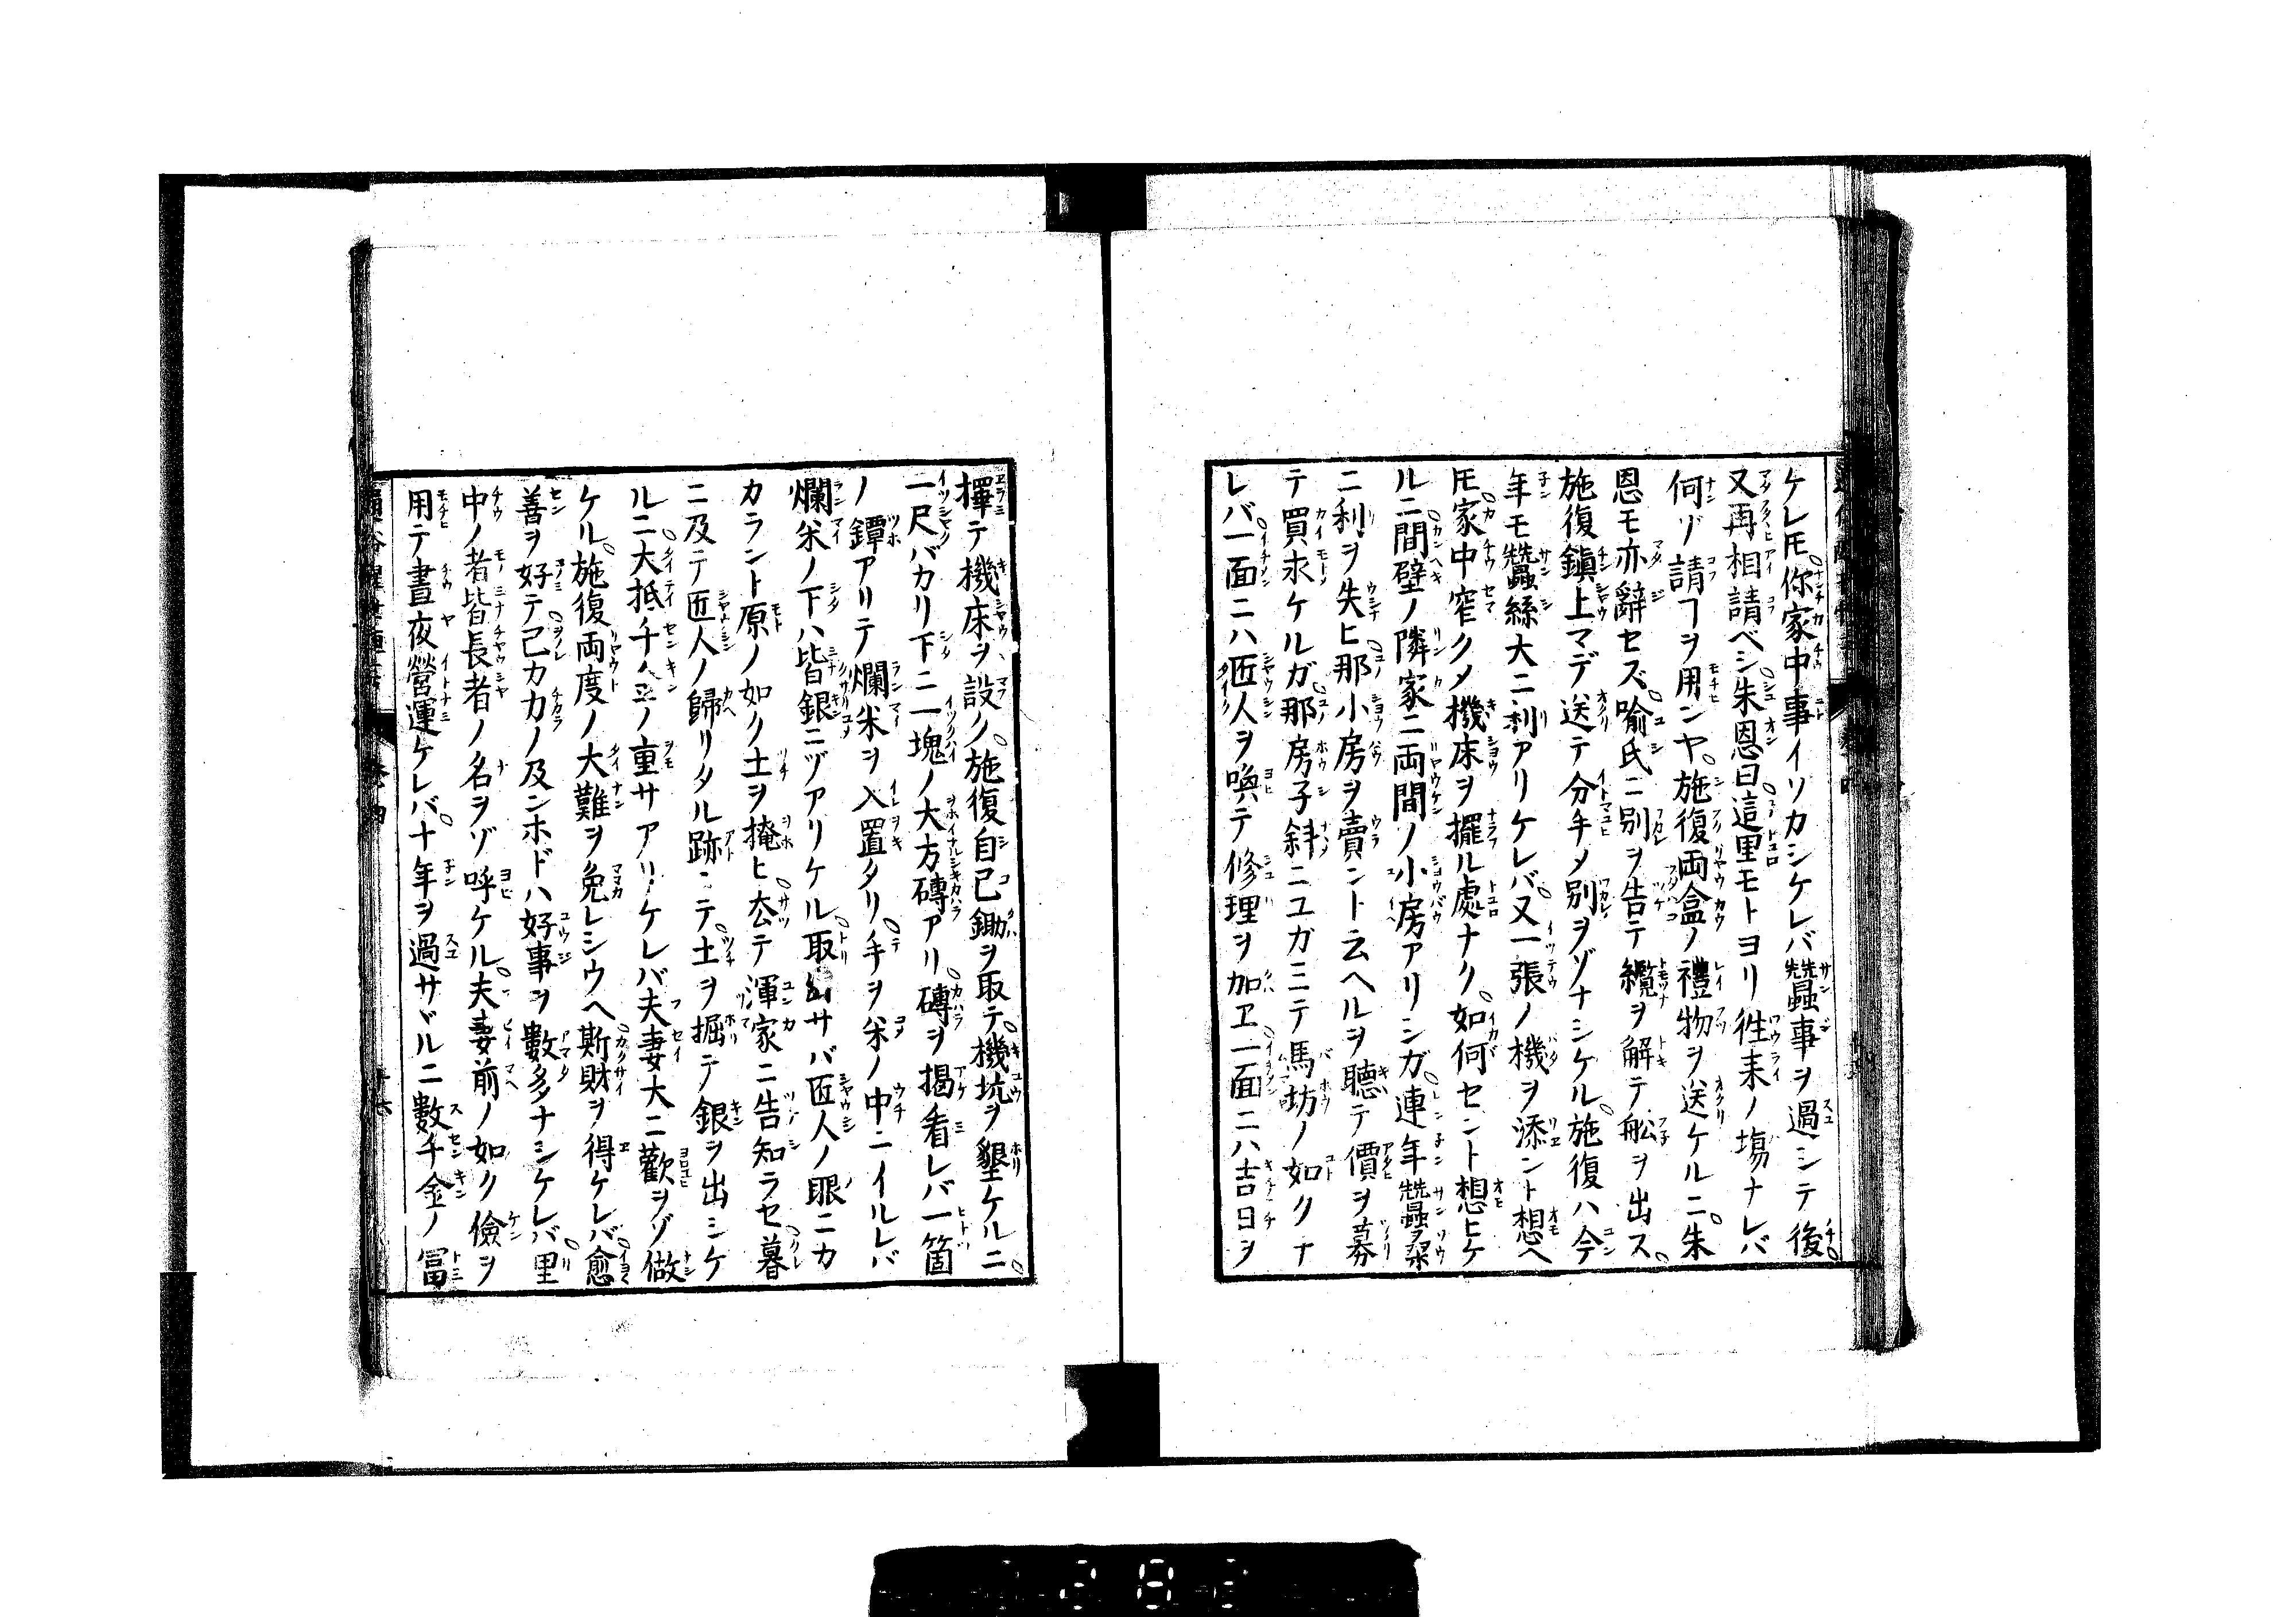 ケレ𪜈你家中事イソカシケレバ蠶事ヲ過シテ後
又再相請ベシ朱恩曰這里モトヨリ徃来ノ塲ナレバ
何ゾ請ヿヲ用ンヤ施復両盒ノ禮物ヲ送ケルニ朱
恩モ亦辭セズ喻氏ニ別ヲ告テ纜ヲ解テ舩ヲ出ス
施復鎭上マデ送テ分手メ別ヲゾナシケル施復ハ今
年モ蠶絲大ニ利アリケレバ又一張ノ機ヲ添ント想ヘ
𪜈家中窄クメ機床ヲ擺ル處ナク如何セント想ヒケ
ルニ間壁ノ隣家ニ両間ノ小房アリシガ連年蠶桒
ニ利ヲ失ヒ那小房ヲ賣ント云ヘルヲ聴テ價ヲ募
テ買求ケルガ那房子斜ニユガミテ馬坊ノ如クナ
レバ一面ニハ匠人ヲ喚テ修理ヲ加ヱ一面ニハ吉日ヲ
擇テ機床ヲ設ク施復自己鋤ヲ取テ機坑ヲ墾ケルニ
一尺バカリ下ニ一塊ノ大方磚アリ磚ヲ揭看レバ一箇
ノ鐔アリテ爛米ヲ入置タリ手ヲ米ノ中ニイルレバ
爛米ノ下ハ皆銀ニゾアリケル取出サバ匠人ノ眼ニカ
カラント原ノ如ク土ヲ掩ヒ厺テ渾家ニ告知ラセ暮
ニ及テ匠人ノ歸リタル跡ニテ土ヲ掘テ銀ヲ出シケ
ルニ大抵千金ノ重サアリケレバ夫妻大ニ歡ヲゾ做
ケル施復両度ノ大難ヲ免レシウヘ斯財ヲ得ケレバ愈
善ヲ好テ己カ力ノ及ンホドハ好事ヲ數多ナシケレバ里
中ノ者皆長者ノ名ヲゾ呼ケル夫妻前ノ如ク儉ヲ
用テ晝夜營運ケレバ十年ヲ過サヾルニ數千金ノ冨